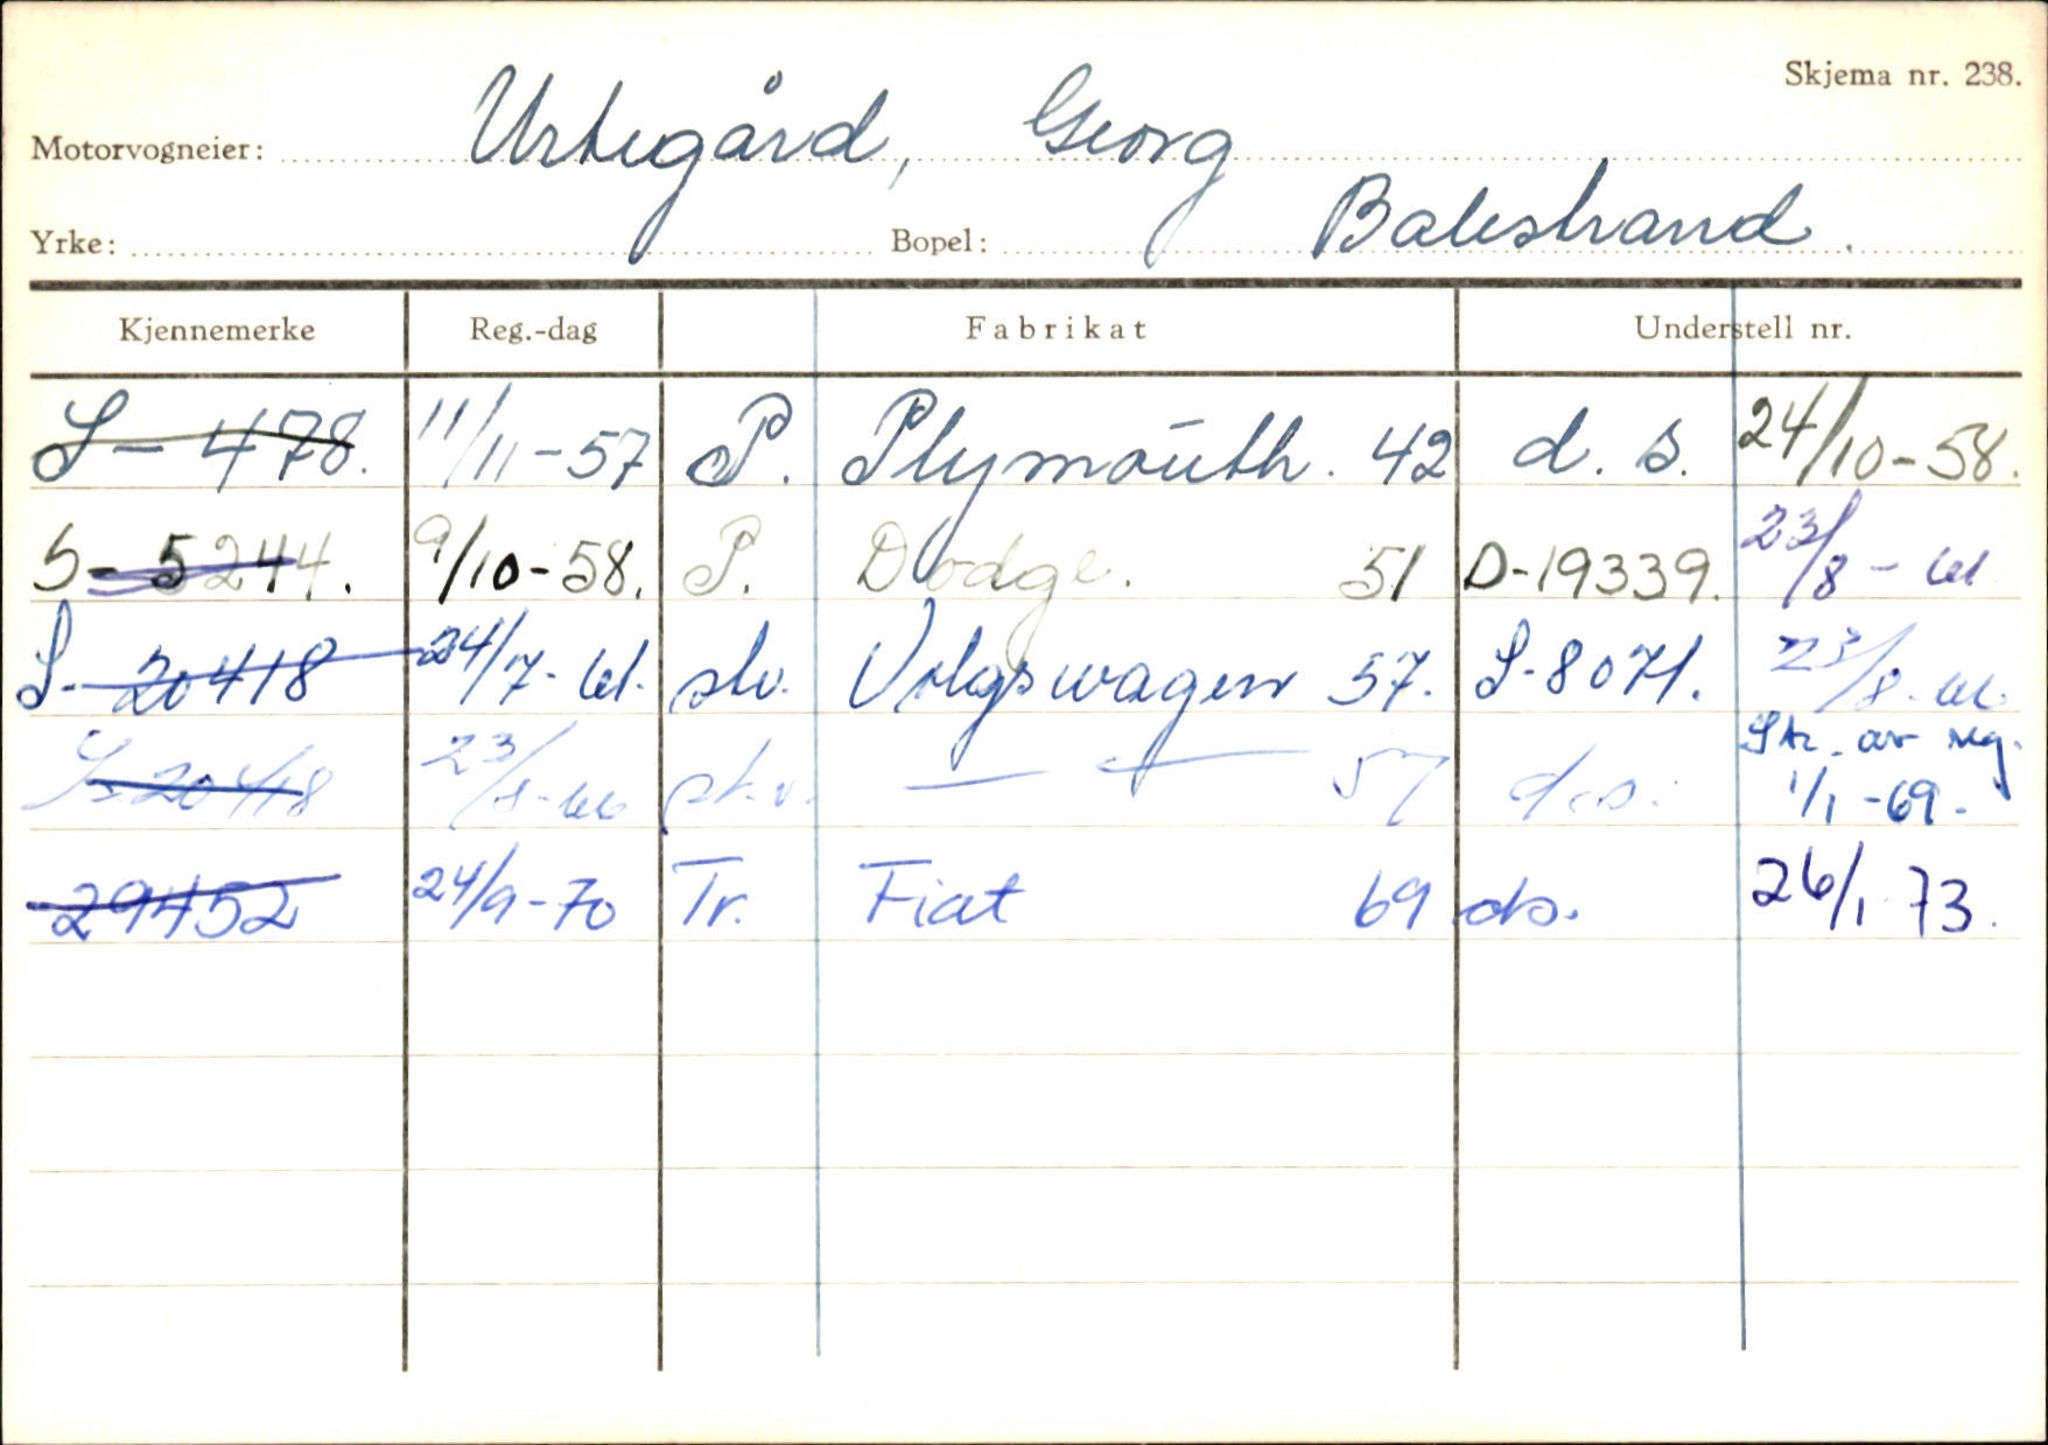 Skjema nr. 238.
Motorvogneier: Urtegård, Georg
Yrke: Bopel: Balestrand.
Kjennemerke Reg.-dag Fabrikat Understell nr.
S-478. 11/11-57 P. Plymouth. 42 d. s. 24/10-58.
S-5244. 9/10-58. P. Dodge. 51 D-19339. 23/8-61
S-20418 24/7-61. stv. Volgswagen 57. S-8071. 23/8-66.
S-20418 23/8-66 st.v. — — 57 d.s. Str. av reg. 1/1-69-
29452 24/9-70 Tr. Fiat 69 ds. 26/1 73.